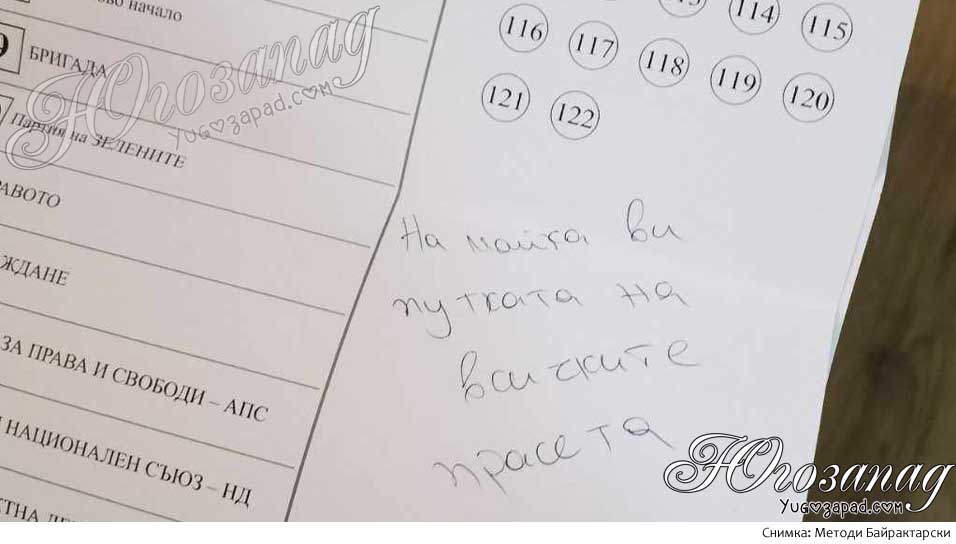 ово начало
9 БРИГАДА
Партия на ЗЕЛЕНИТЕ
РАВОТО
ЖДАНЕ
ЗА ПРАВА И СВОБОДИ – АПС
НАЦИОНАЛЕН СЪЮЗ – НД
114 115
116 117 118 119 120
121 122
На майка ви
путката на
всичките
прасета
Югозапад
Yugozapad.com
Югозапад
Yugozapad.com
Снимка: Методи Байрактарски